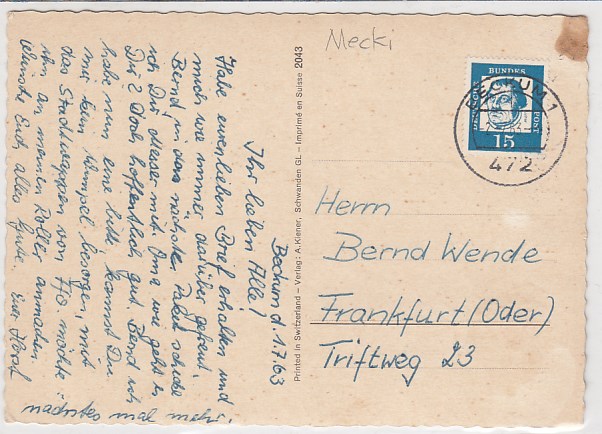 Mecki
Bochum d. 1.7.63
Ihr lieben Alle!
Habe euren lieben Brief erhalten und
mich wie immer darüber gefreut.
Bernd in dem nächsten Paket schicke
ich Dir Messer mit. Oma wie geht es
Dir? Doch hoffentlich gut. Bernd ich
habe nun eine bitte, kannst Du
mir kein Wimpel besorgen, mit
das Stadtwappen von Ffo. möchte
ihn an meinen Roller anmachen
Wünsche Euch alles Gute. Euer Horst
nächstes mal mehr.
Printed in Switzerland – Verlag: A. Kiener, Schwanden GL – Imprimé en Suisse 2043
DEUTSCHE
BUNDES
POST
15
1
472
Herrn
Bernd Wende
Frankfurt (Oder)
Triftweg 23